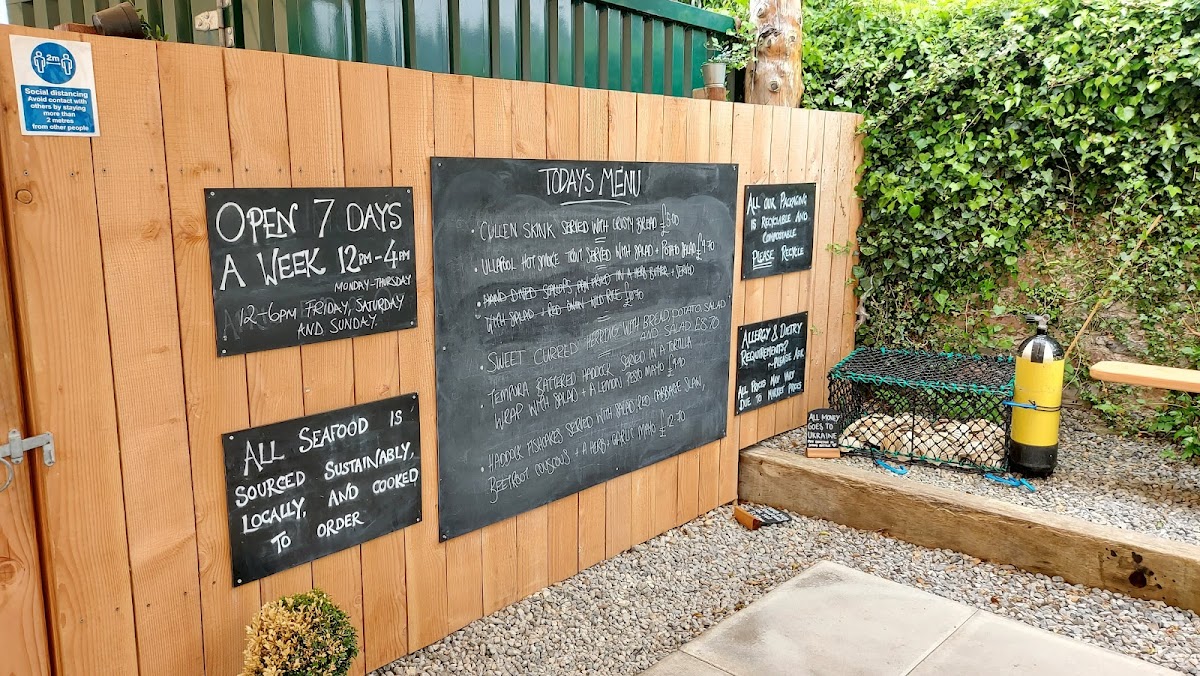 2m
Social distancing
Avoid contact with
others by staying
more than
2 metres
from other people
OPEN 7 DAYS
A WEEK 12PM-4PM
MONDAY-THURSDAY
12-6pm FRIDAY, SATURDAY
AND SUNDAY.
ALL SEAFOOD IS
SOURCED SUSTAINABLY,
LOCALLY, AND COOKED
TO ORDER
TODAY'S MENU
• CULLEN SKINK SERVED WITH CRUSTY BREAD £5.00
• ULLAPOOL HOT SMOKE TROUT SERVED WITH SALAD + POTATO SALAD £9.70
• HAND DIVED SCALLOPS PAN FRIED IN A HERB BUTTER + SERVED
WITH SALAD + RED ONION WILD RICE
• SWEET CURRED HERRING WITH BREAD, POTATO SALAD
AND SALAD £8.70
• TEMPURA BATTERED HADDOCK SERVED IN A TORTILLA
WRAP WITH SALAD + A LEMON PESTO MAYO £9.90
• HADDOCK FISHCAKES SERVED WITH SALAD, RED CABBAGE SLAW,
BEETROOT COUSCOUS + A HERB + GARLIC MAYO £12.70
ALL OUR PACKAGING
IS RECYCLABLE AND
COMPOSTABLE
PLEASE RECYCLE
ALLERGY & DIETRY
REQUIREMENTS?
~PLEASE ASK
ALL PRICES MAY VARY
DUE TO MARKET PRICES
ALL MONEY
GOES TO
UKRAINE